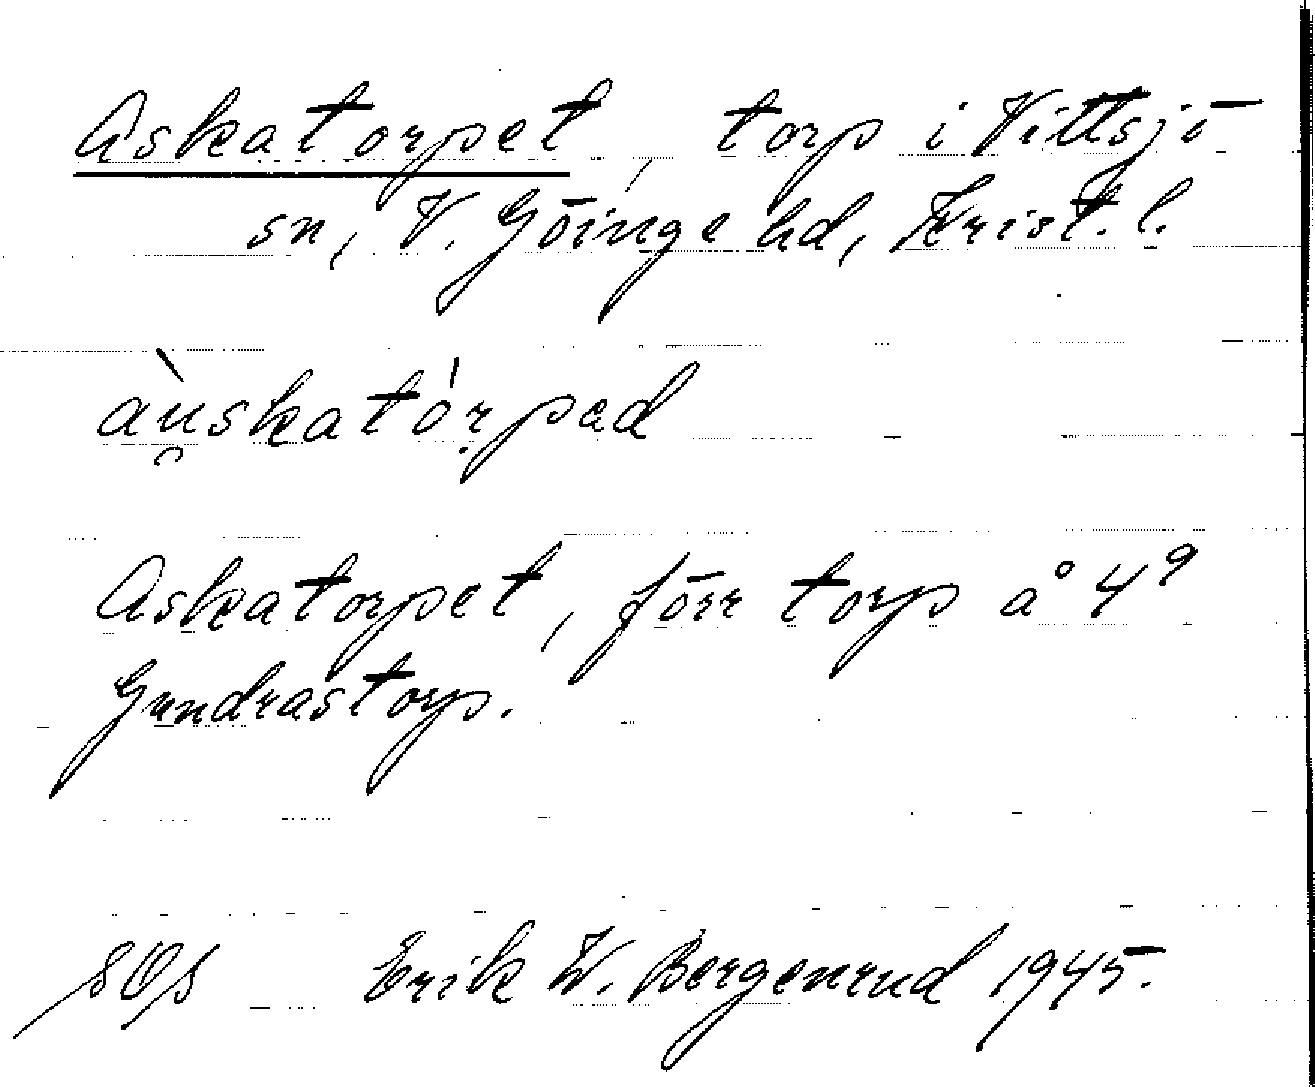 Askatorpet, torp i Vittsjö
sn, V. Göinge hd, Krist. l.
àu̯skatórpad
Askatorpet, förr torp å 49
Gundrastorp.
Erik W. Bergenrud 1945.